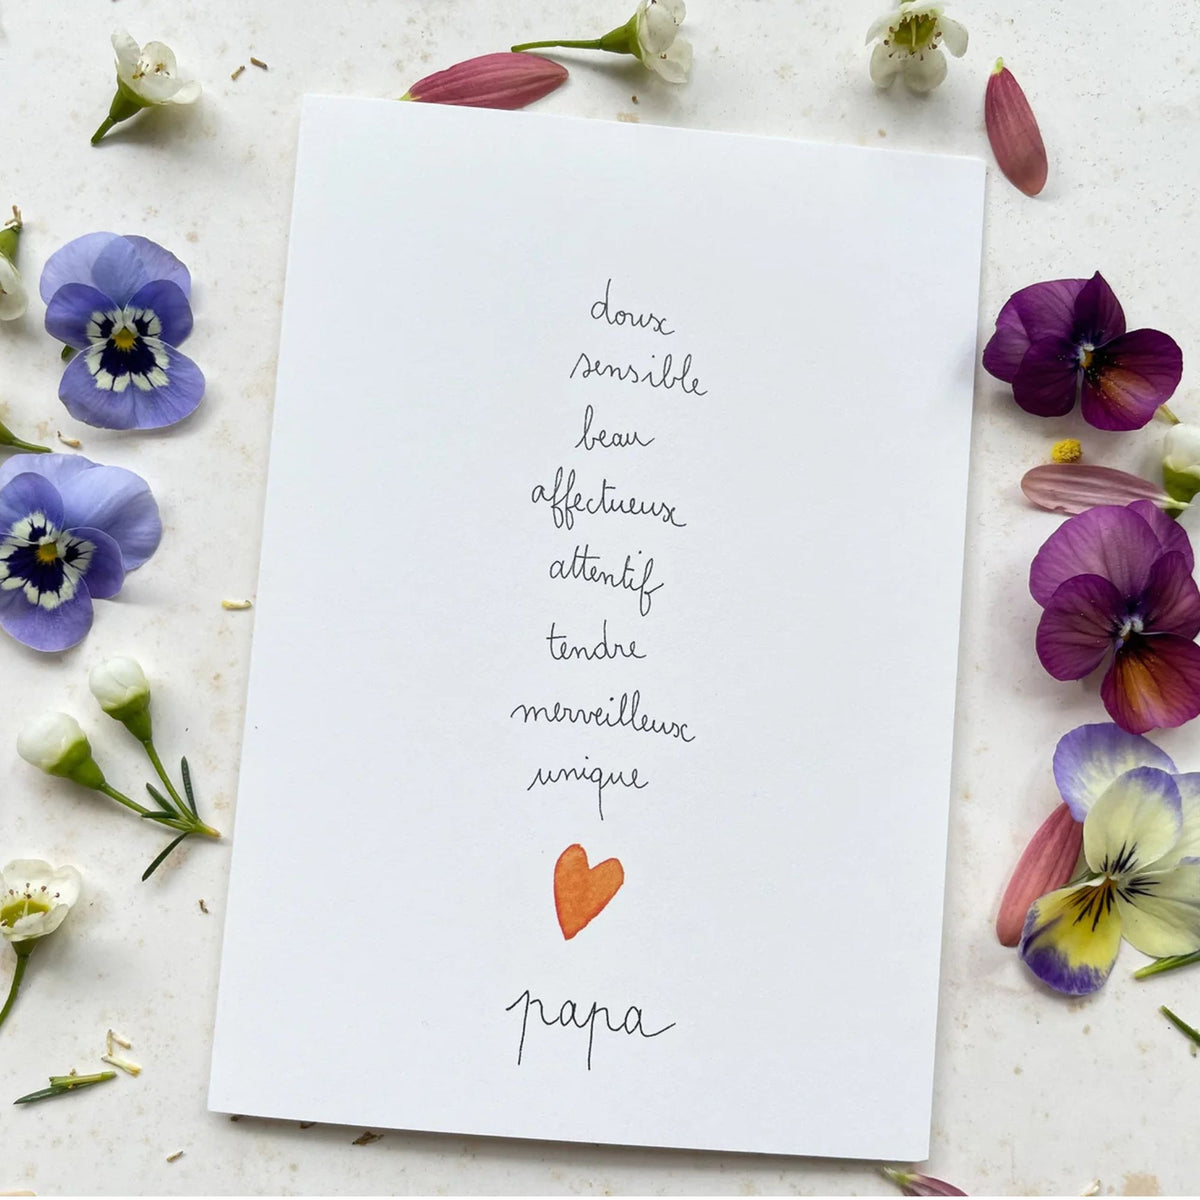 doux
sensible
beau
affectueux
attentif
tendre
merveilleux
unique
papa